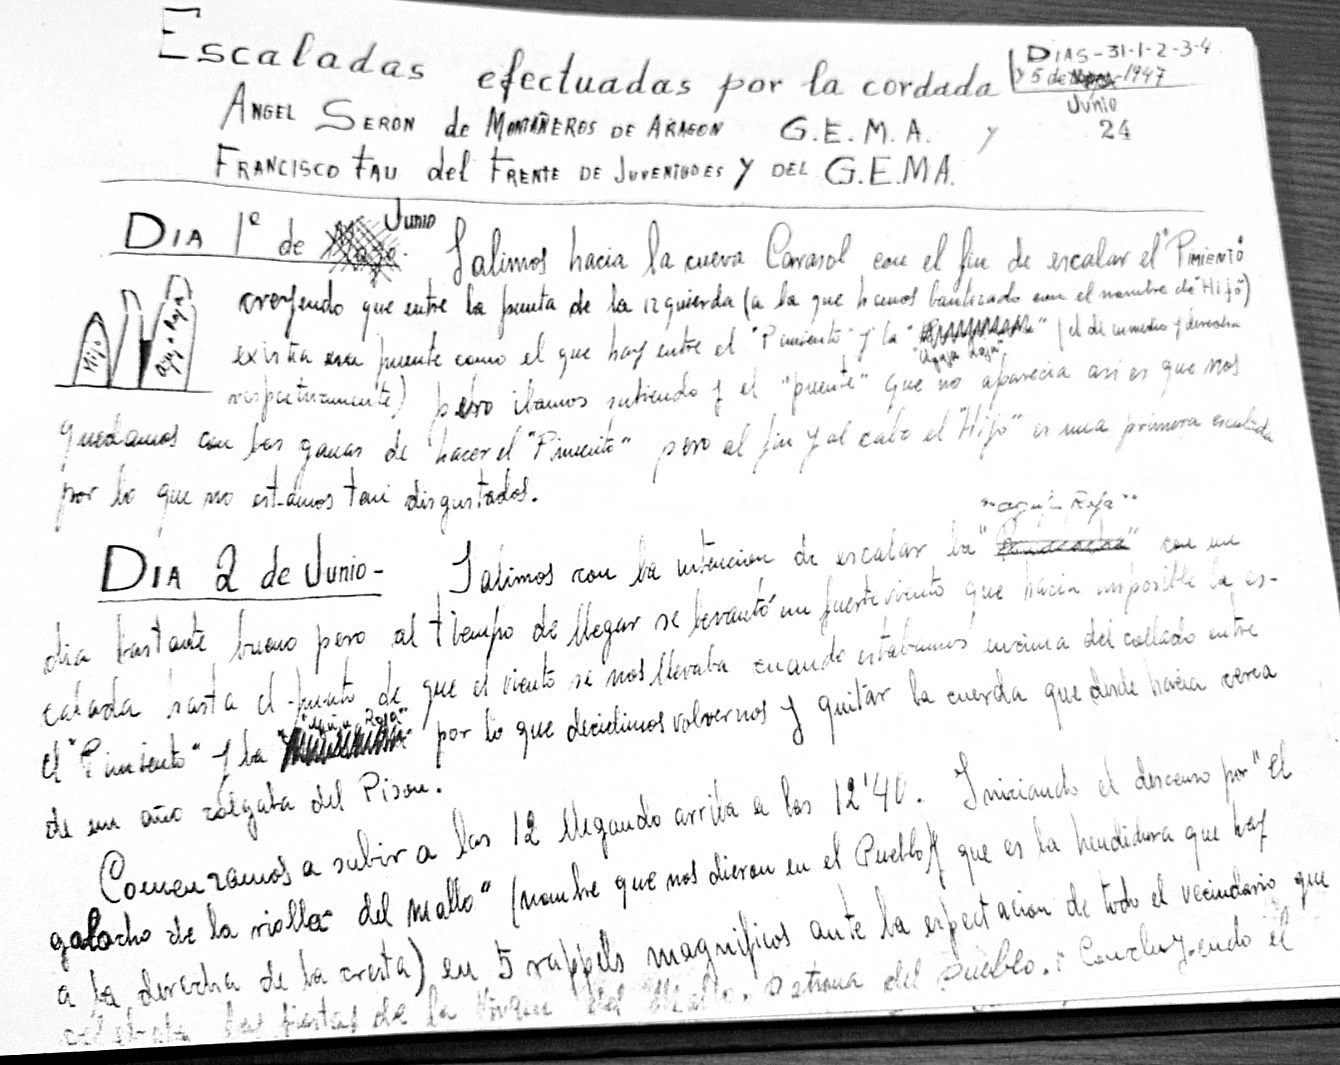 Escaladas efectuadas por la cordada
DIAS-31-1-2-3-4
y 5 de -1947
Junio
ANGEL SERON de MONTAÑEROS DE ARAGON G.E.M.A. y
24
FRANCISCO FAU del FRENTE DE JUVENTUDES Y DEL G.E.M.A.
DIA 1º de Mayo Junio Salimos hacia la cueva Carasol con el fin de escalar el "PIMIENTO
creyendo que entre la punta de la izquierda (a la que hemos bautizado con el nombre de "Hijo")
existia un puente como el que hay entre el "Pimiento" y la " " (el de enmedio y derecha
"Aguja Roja"
Hijo
Aguja Roja
respectivamente) pero ibamos subiendo y el "puente" que no aparecia asi es que nos
quedamos con las ganas de hacer el "Pimiento" pero al fin y al cabo el "Hijo" es una primera escalada
por lo que no estamos tan disgustados.
"aguja Roja"
DIA 2 de Junio- Salimos con la intencion de escalar la " " con un
dia bastante bueno pero al tiempo de llegar se levantó un fuerte viento que hacia imposible la es-
calada hasta el punto de que el viento se nos llevaba cuando estabamos encima del collado entre
"Aguja Roja"
el "Pimiento" y la " " por lo que decidimos volvernos y quitar la cuerda que desde hacia cerca
de un año colgaba del Pison.
Comenzamos a subir a las 12 llegando arriba a las 12'40. Iniciando el descenso por "el
galacho de la violla del mallo" (nombre que nos dieron en el Pueblo) que es la hendidura que hay
a la derecha de la cresta) en 5 rappels magnificos ante la espectacion de todo el vecindario que
celebraba las fiestas de la Virgen del Mallo. Patrona del pueblo. Concluyendo el